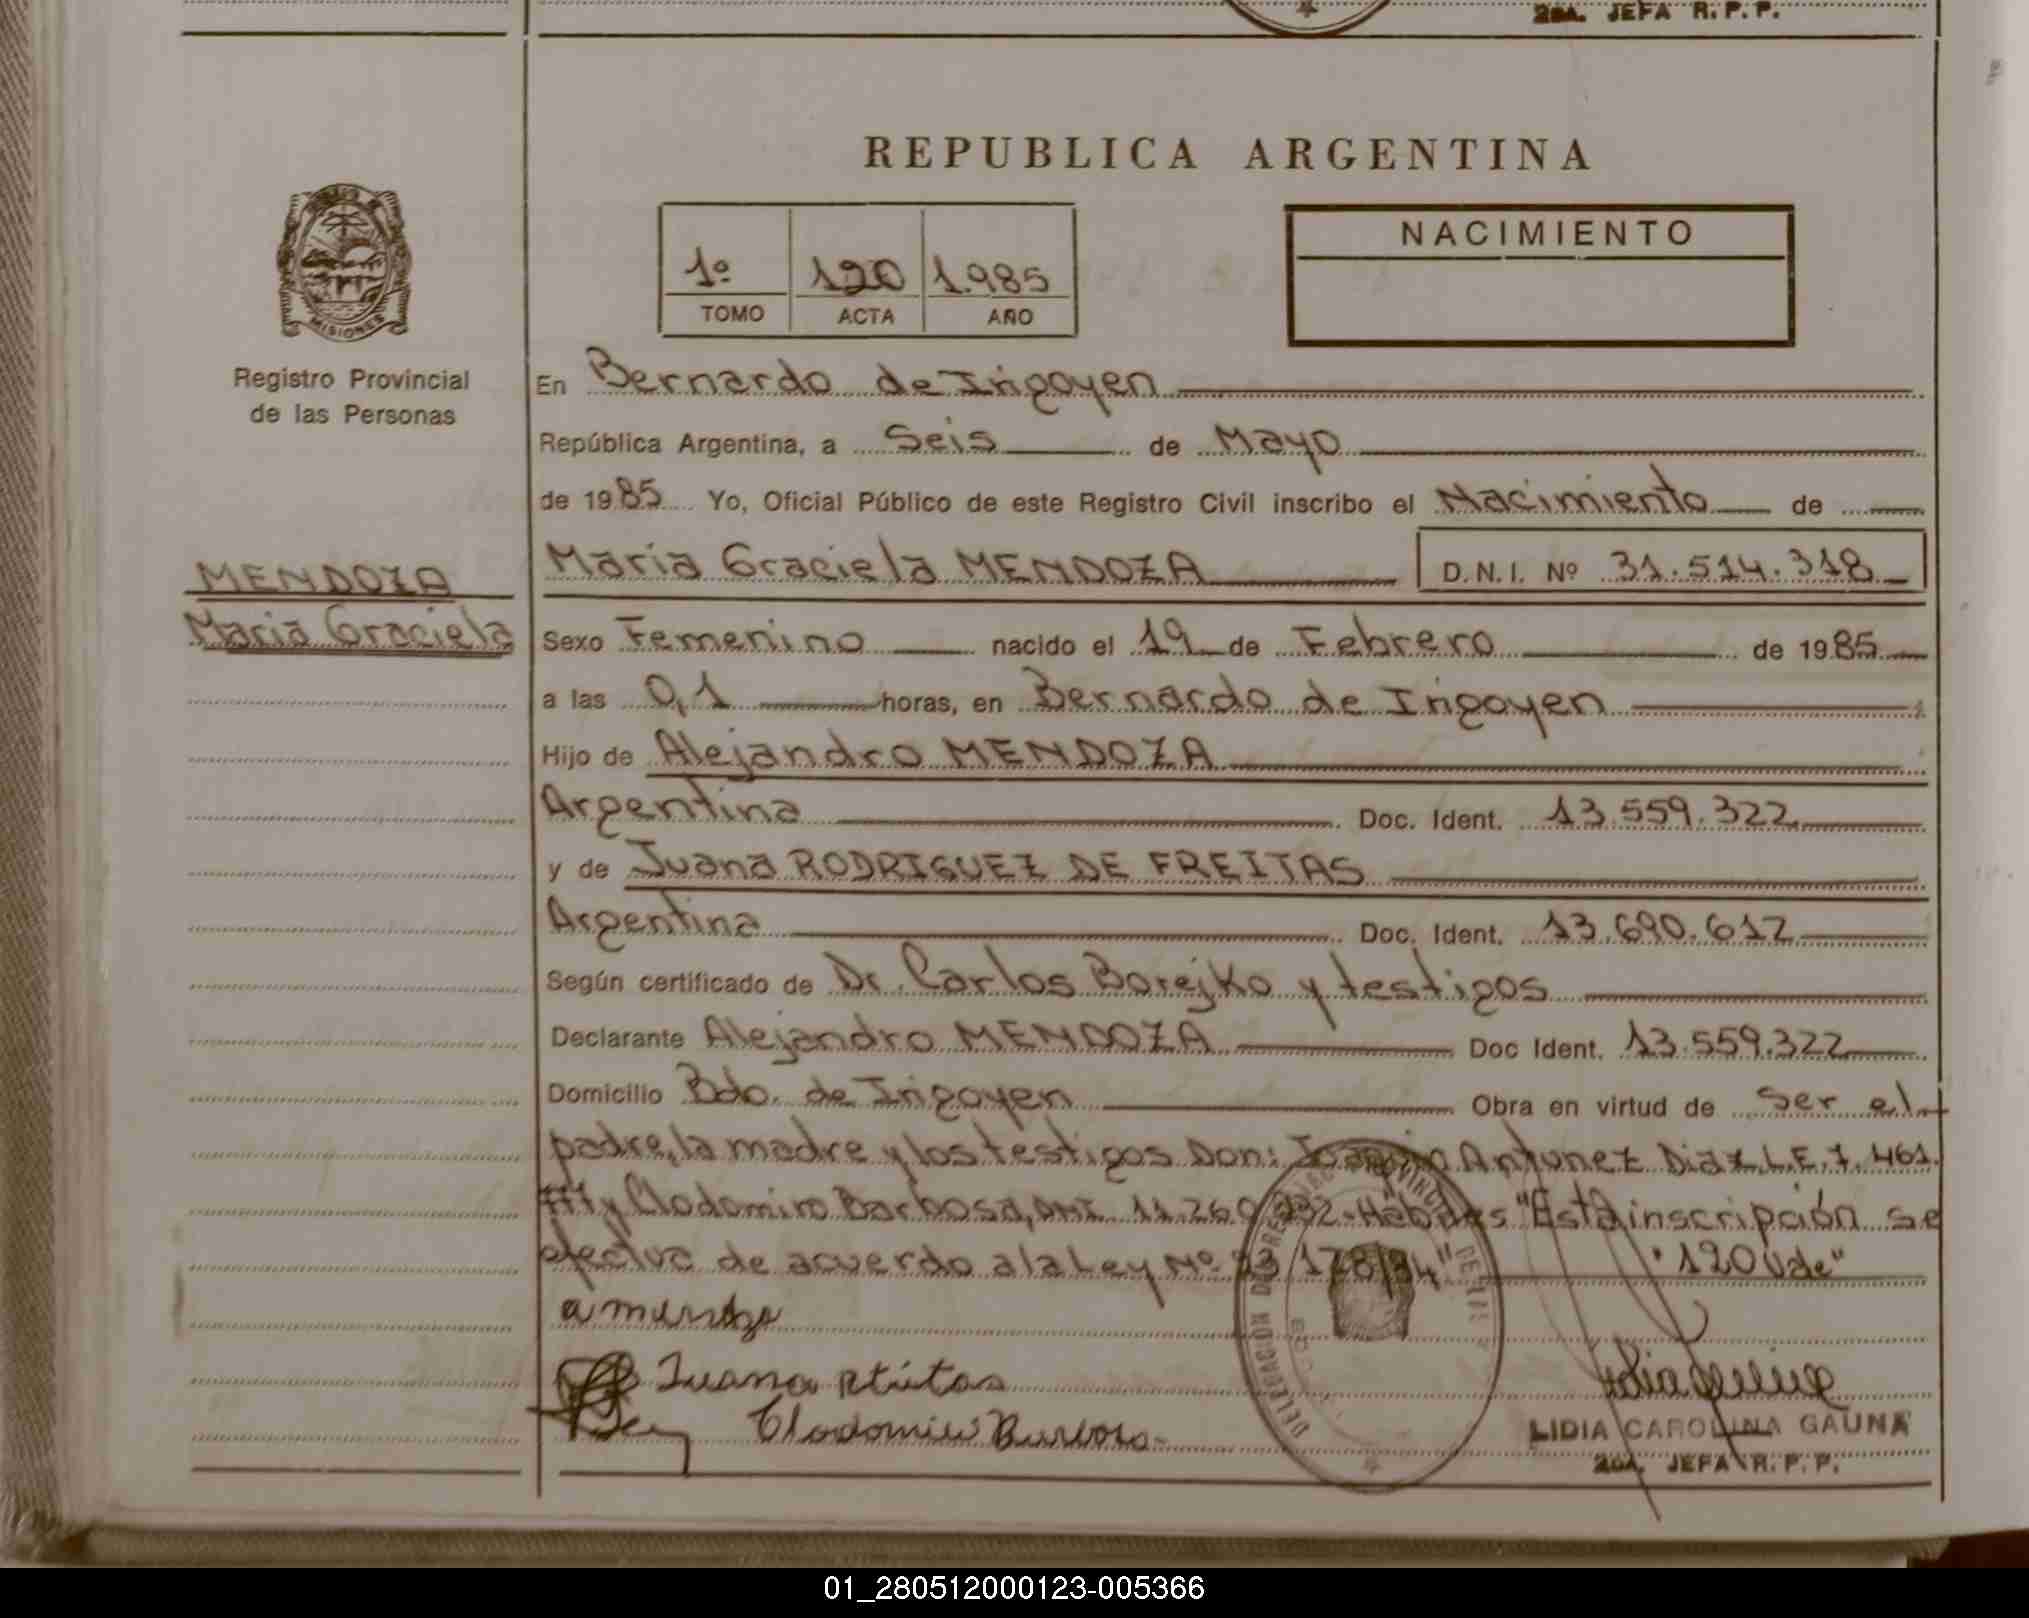 2da. JEFA R.P.P.
REPUBLICA ARGENTINA
NACIMIENTO
1º 120 1.985
TOMO ACTA AÑO
MISIONES
Registro Provincial
de las Personas
En Bernardo de Irigoyen
República Argentina, a Seis de Mayo
de 1985 Yo, Oficial Público de este Registro Civil inscribo el Nacimiento de
MENDOZA
Maria Graciela
Maria Graciela MENDOZA D.N.I. Nº 31.514.318
Sexo Femenino nacido el 19 de Febrero de 1985
a las 0,1 horas, en Bernardo de Irigoyen
Hijo de Alejandro MENDOZA
Argentina Doc. Ident. 13.559.322
y de Juana RODRIGUEZ DE FREITAS
Argentina Doc. Ident. 13.690.612
Según certificado de Dr. Carlos Borejko y testigos
Declarante Alejandro MENDOZA Doc Ident. 13.559.322
Domicilio Bdo. de Irigoyen Obra en virtud de Ser el
padre, la madre y los testigos Don: Antunez Diaz L.E. 7.461.
y Clodomiro Barbosa, DNI. "Esta inscripción se
efectua de acuerdo a la Ley Nº "120 Vde"
a mendoza
Juana
Clodomiro Barbosa
DELEGACION
LIDIA CAROLINA GAUNA
2da. JEFA R.P.P.
01_280512000123-005366